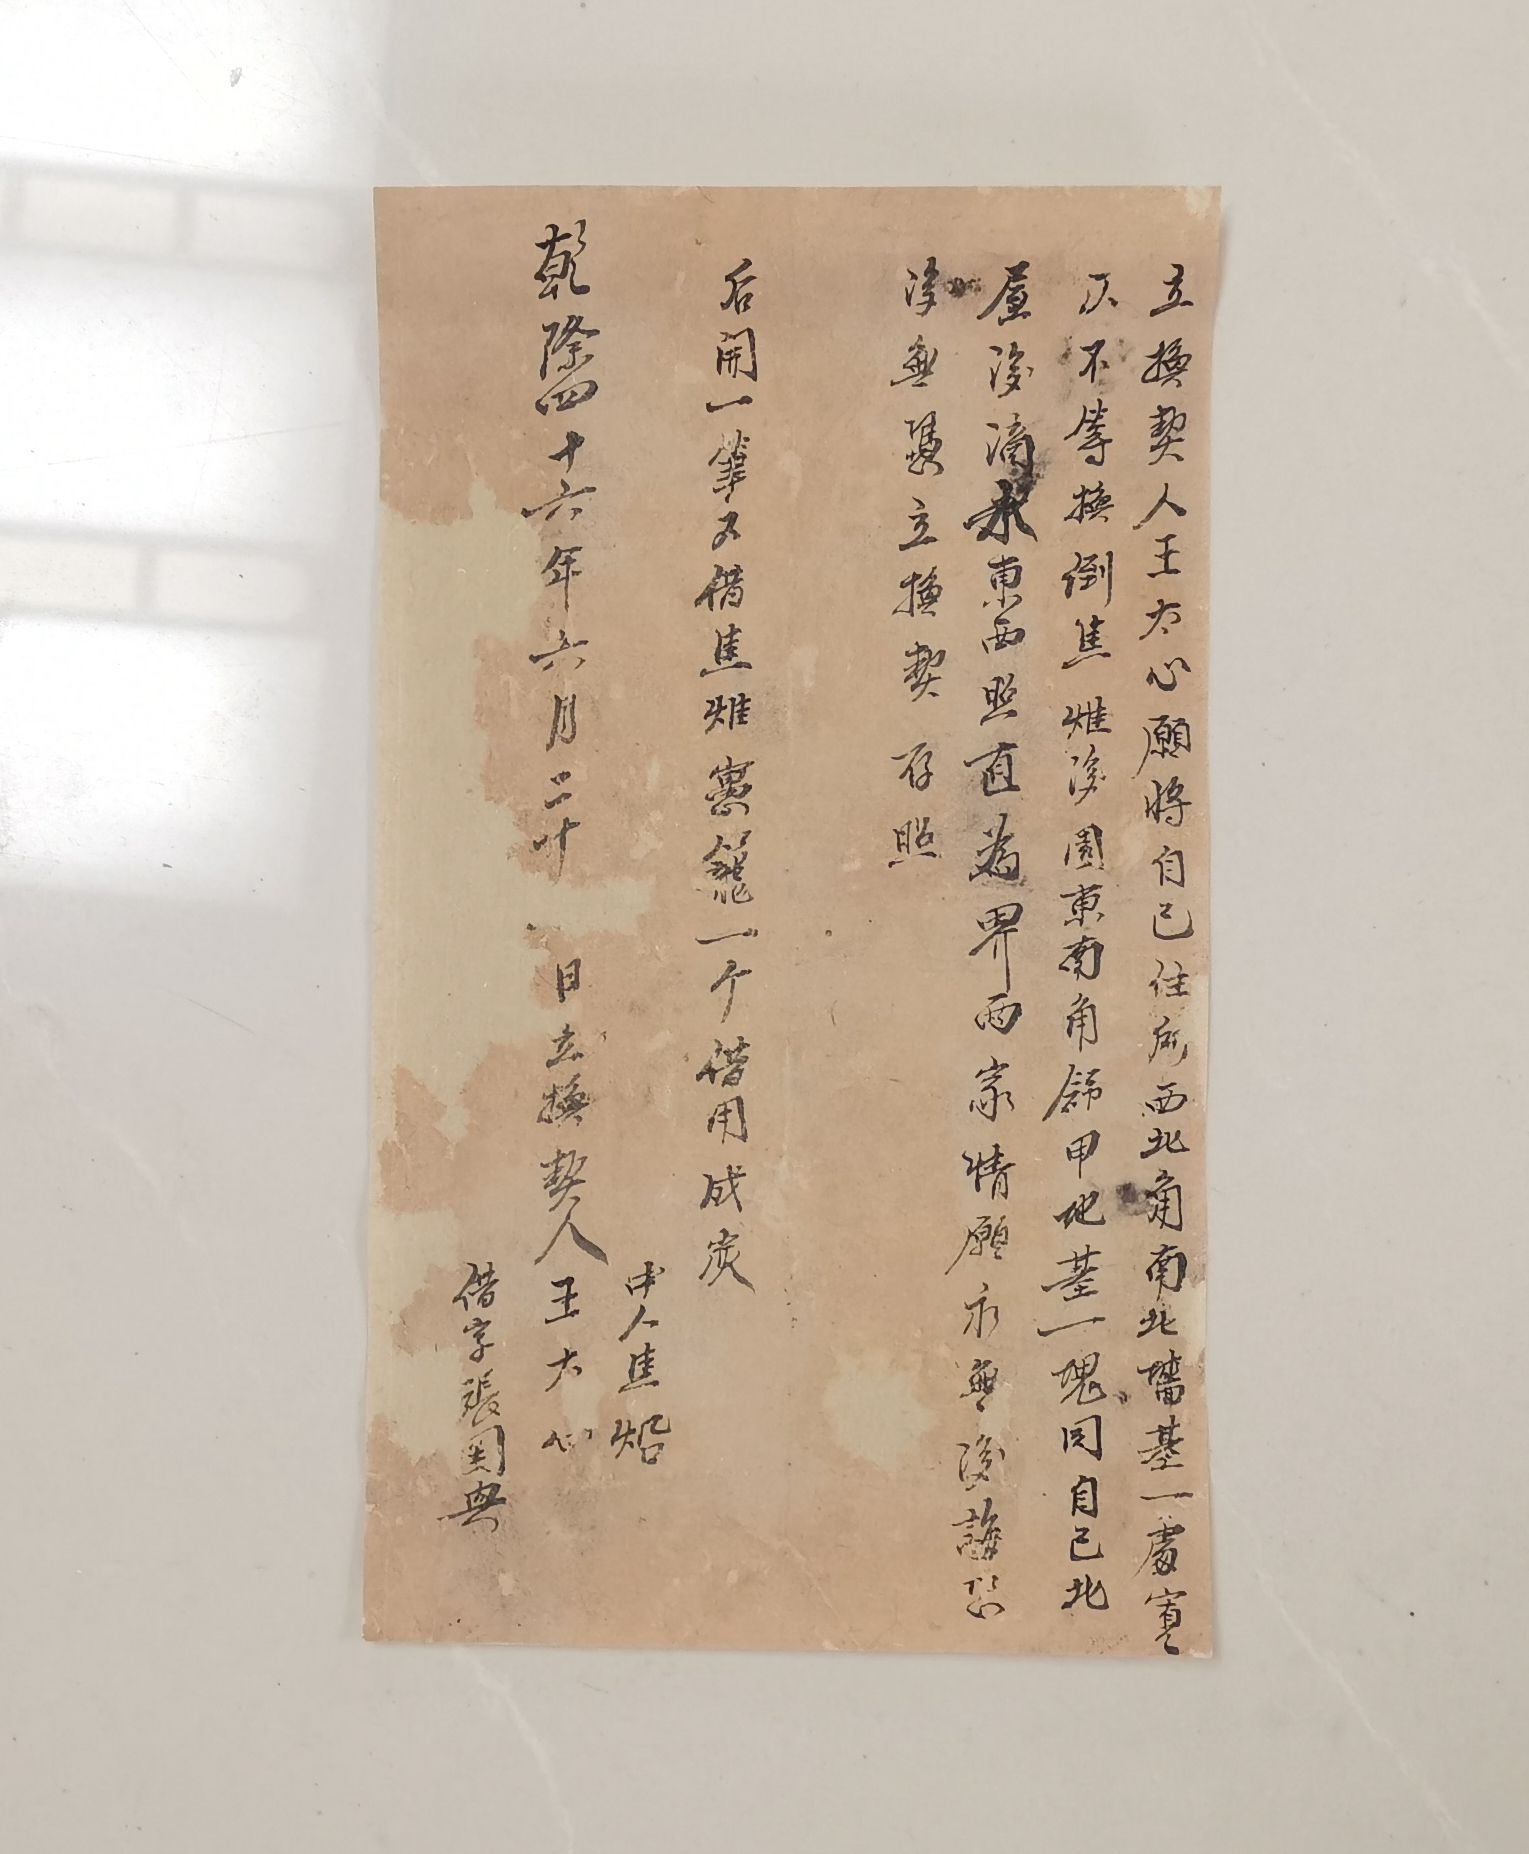 立換契人王大心願將自己住所西北角南北墻基一處寬
仄不等換倒焦煟後園東南角餘甲地基一塊同自己北
屋後滴水東西照直為界両家情願永無後誨恐
後無憑立換契存照
后開一筆又借焦煟窓籠一个借用成炭
乾隆四十六年六月二十 日立換契人王大心
中人焦焰
借字張國興